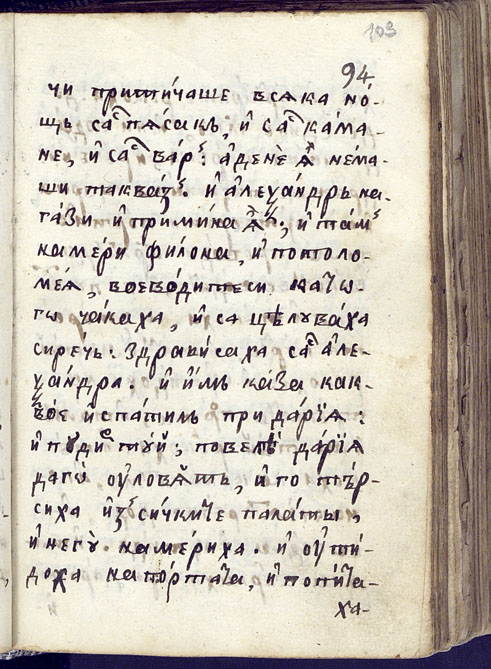 103
94
чи притича́ше всѧка но́-
щь саⷭ҇ пѧ́сакь, и҆ саⷭ҇ ка́ма-
не, и҆ саⷭ҇ ва́рⸯ: а҆денѐ ѧ҆̀ не́ма-
ши таква́зⸯ. и҆ а҆леѯа́ндрь на-
га́зи и҆ примина ѧ҆̀, и҆ та́мⸯ
наме́ри фило́на, и҆ потоло-
ме́ѧ, воево́дитеси като̀-
гѡ ча́каха, и҆ са цѣлува́ха
си́речь: здрави́саха саⷭ҇ а҆ле-
ѯа́ндра. и҆ и҆́мь ка́за как-
во̀е и҆спа́тиль при да́рїѧ:
и҆ пꙋди́ туй; повелѣ̀ да́рїѧ
даго̀ оу҆ловѧ́ть, и҆ го тъ́р-
сиха и҆зⸯ си́чките пала́ты,
и҆ него̀ не наме́риха. и҆ оу҆ти́-
доха на по́ртата, и҆ попи́та-
ха-